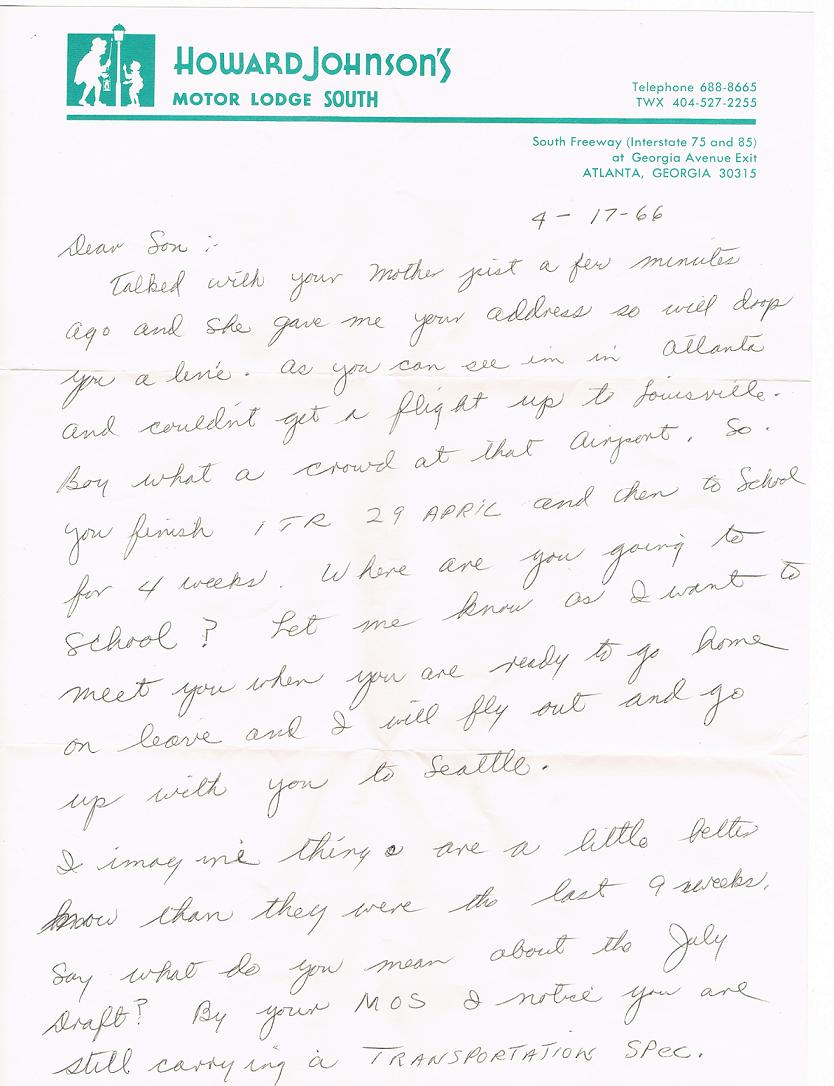 HOWARD JOHNSON'S
MOTOR LODGE SOUTH
Telephone 688-8665
TWX 404-527-2255
South Freeway (Interstate 75 and 85)
at Georgia Avenue Exit
ATLANTA, GEORGIA 30315
4-17-66
Dear Son:-
Talked with your Mother just a few minutes
ago and She gave me your address so will drop
you a line. As you can see im in Atlanta
and couldn't get a flight up to Louisville.
Boy what a crowd at that Airport. So.
you finish ITR 29 APRIL and then to School
for 4 weeks. Where are you going to
School? Let me know as I want to
meet you when you are ready to go home
on leave and I will fly out and go
up with you to Seattle.
I imagine things are a little better
know than they were the last 9 weeks.
Say what do you mean about the July
Draft? By your MOS I notice you are
still carrying a TRANSPORTATION SPEC.